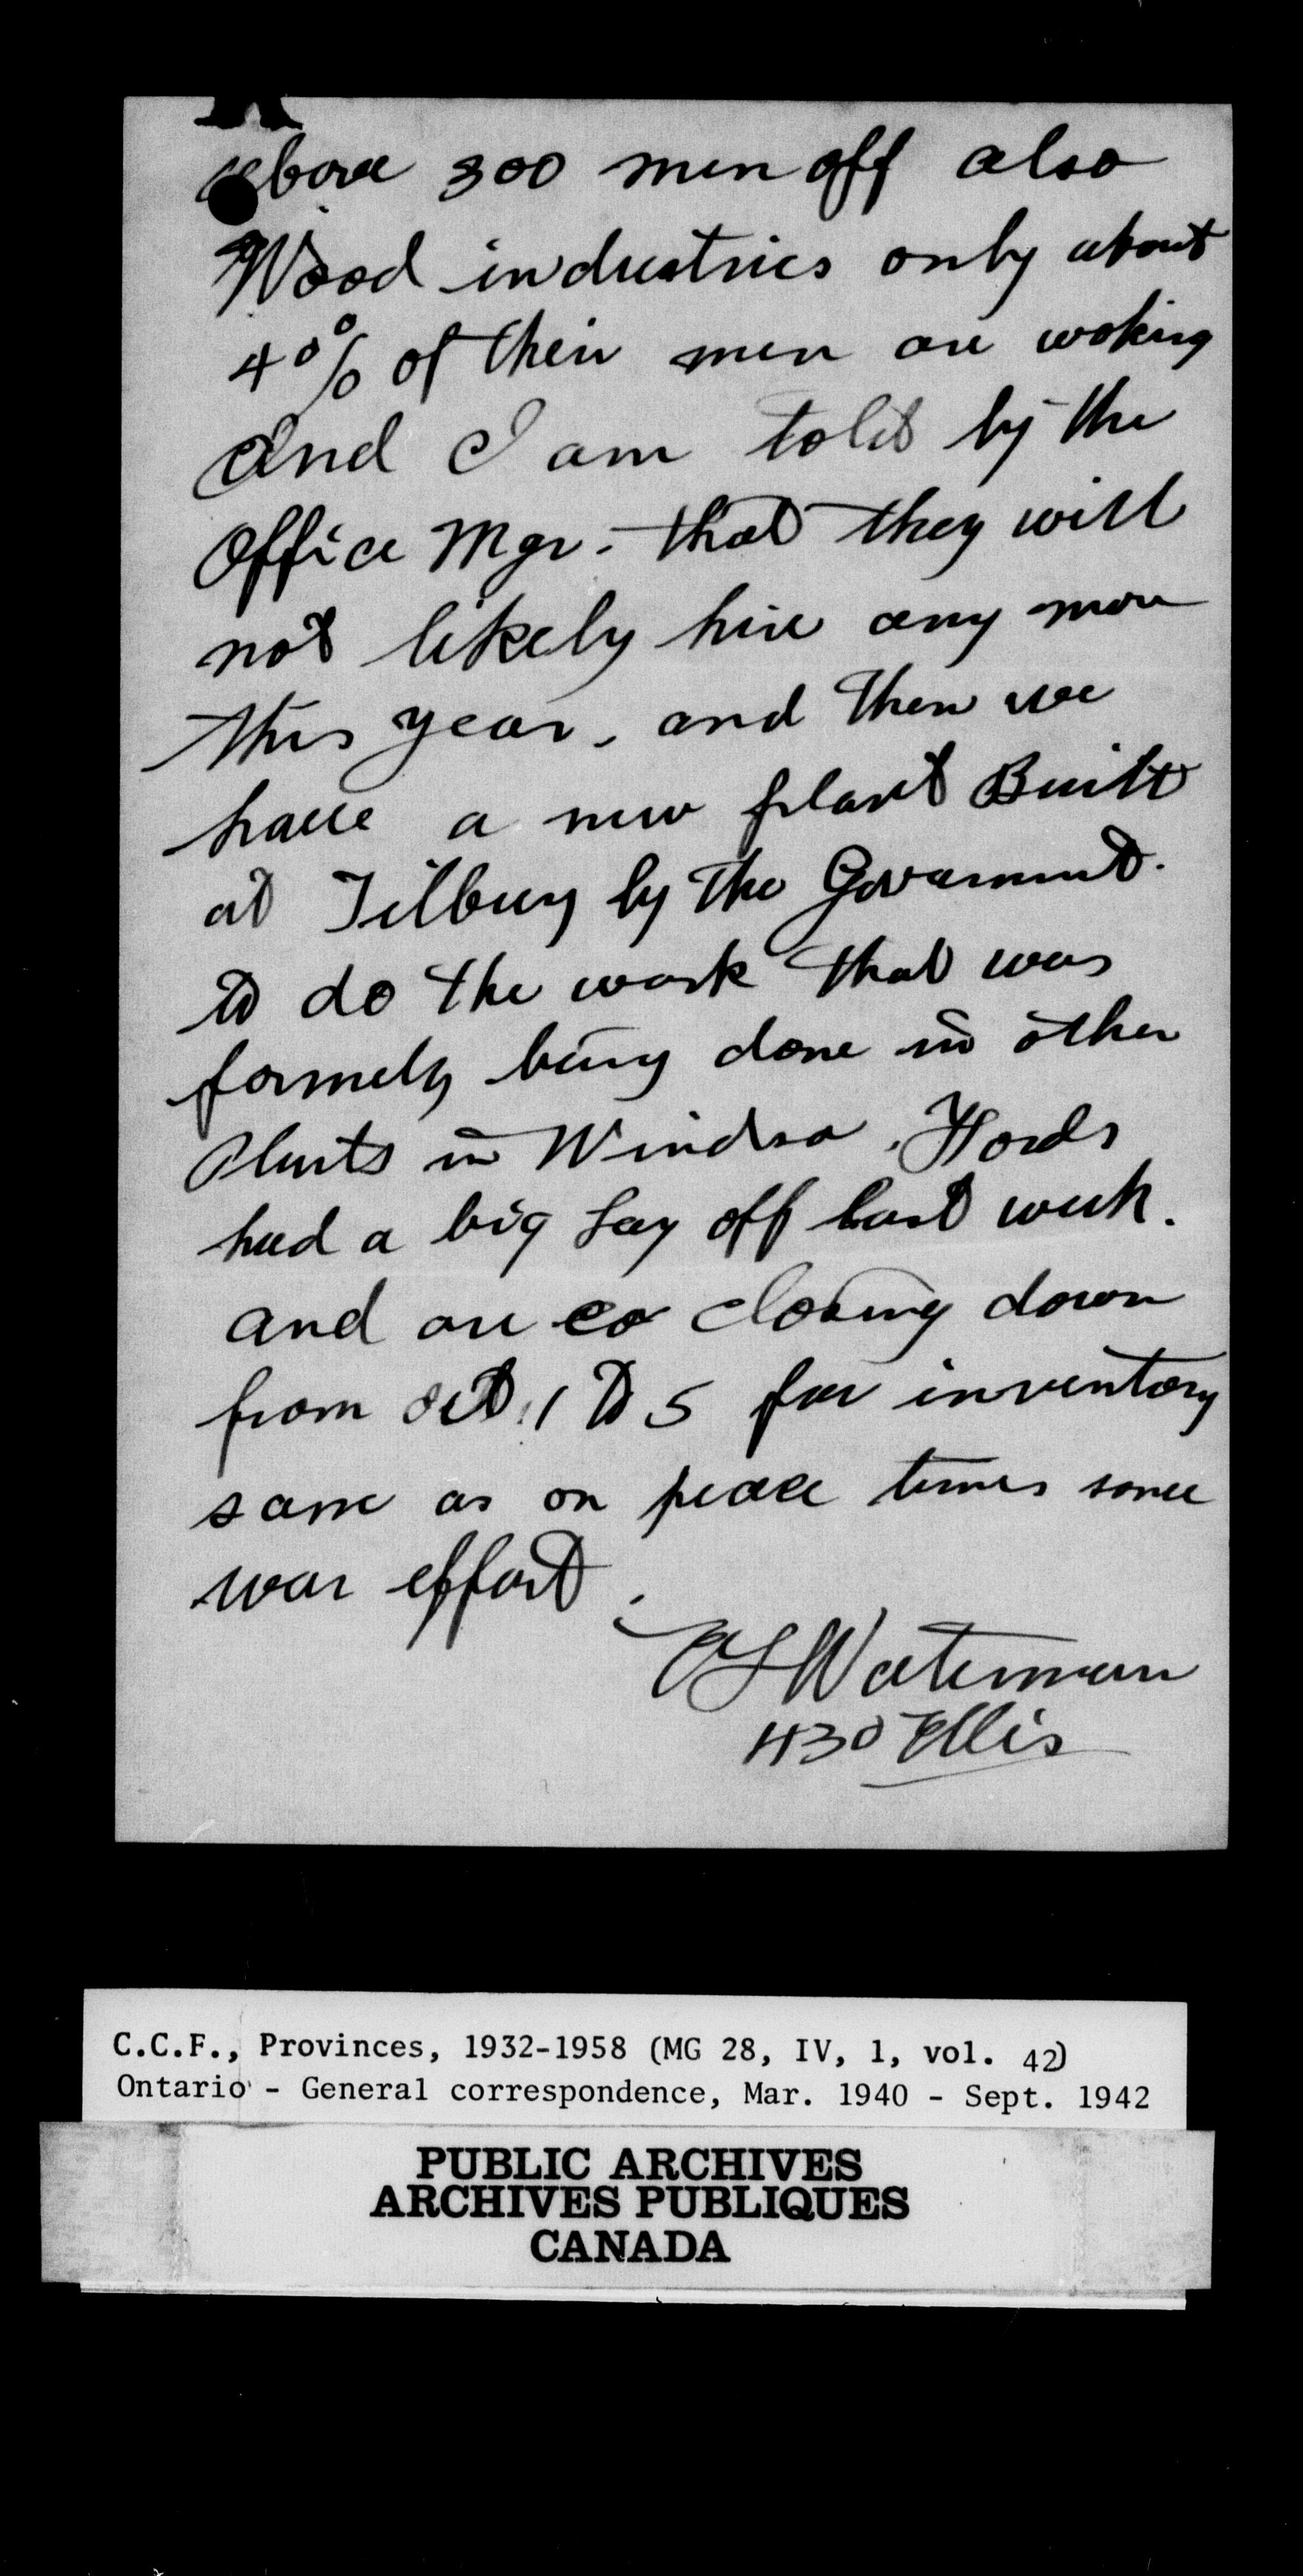 above 300 men off also
Wood industries only about
40% of their men are woking
And I am told by the
Office Mgr. that they will
not likely hire any more
this year, and then we
have a new plant Built
at Tilbury by the Goverment.
to do the work that was
formely being done in other
Plants in Windsor. Fords
had a big Lay off last week.
and are co closing down
from Oct. 1 to 5 for inventory
same as on peace times some
war effort.
Waterman
430 Ellis
C.C.F., Provinces, 1932-1958 (MG 28, IV, 1, vol. 42)
Ontario - General correspondence, Mar. 1940 - Sept. 1942
PUBLIC ARCHIVES
ARCHIVES PUBLIQUES
CANADA